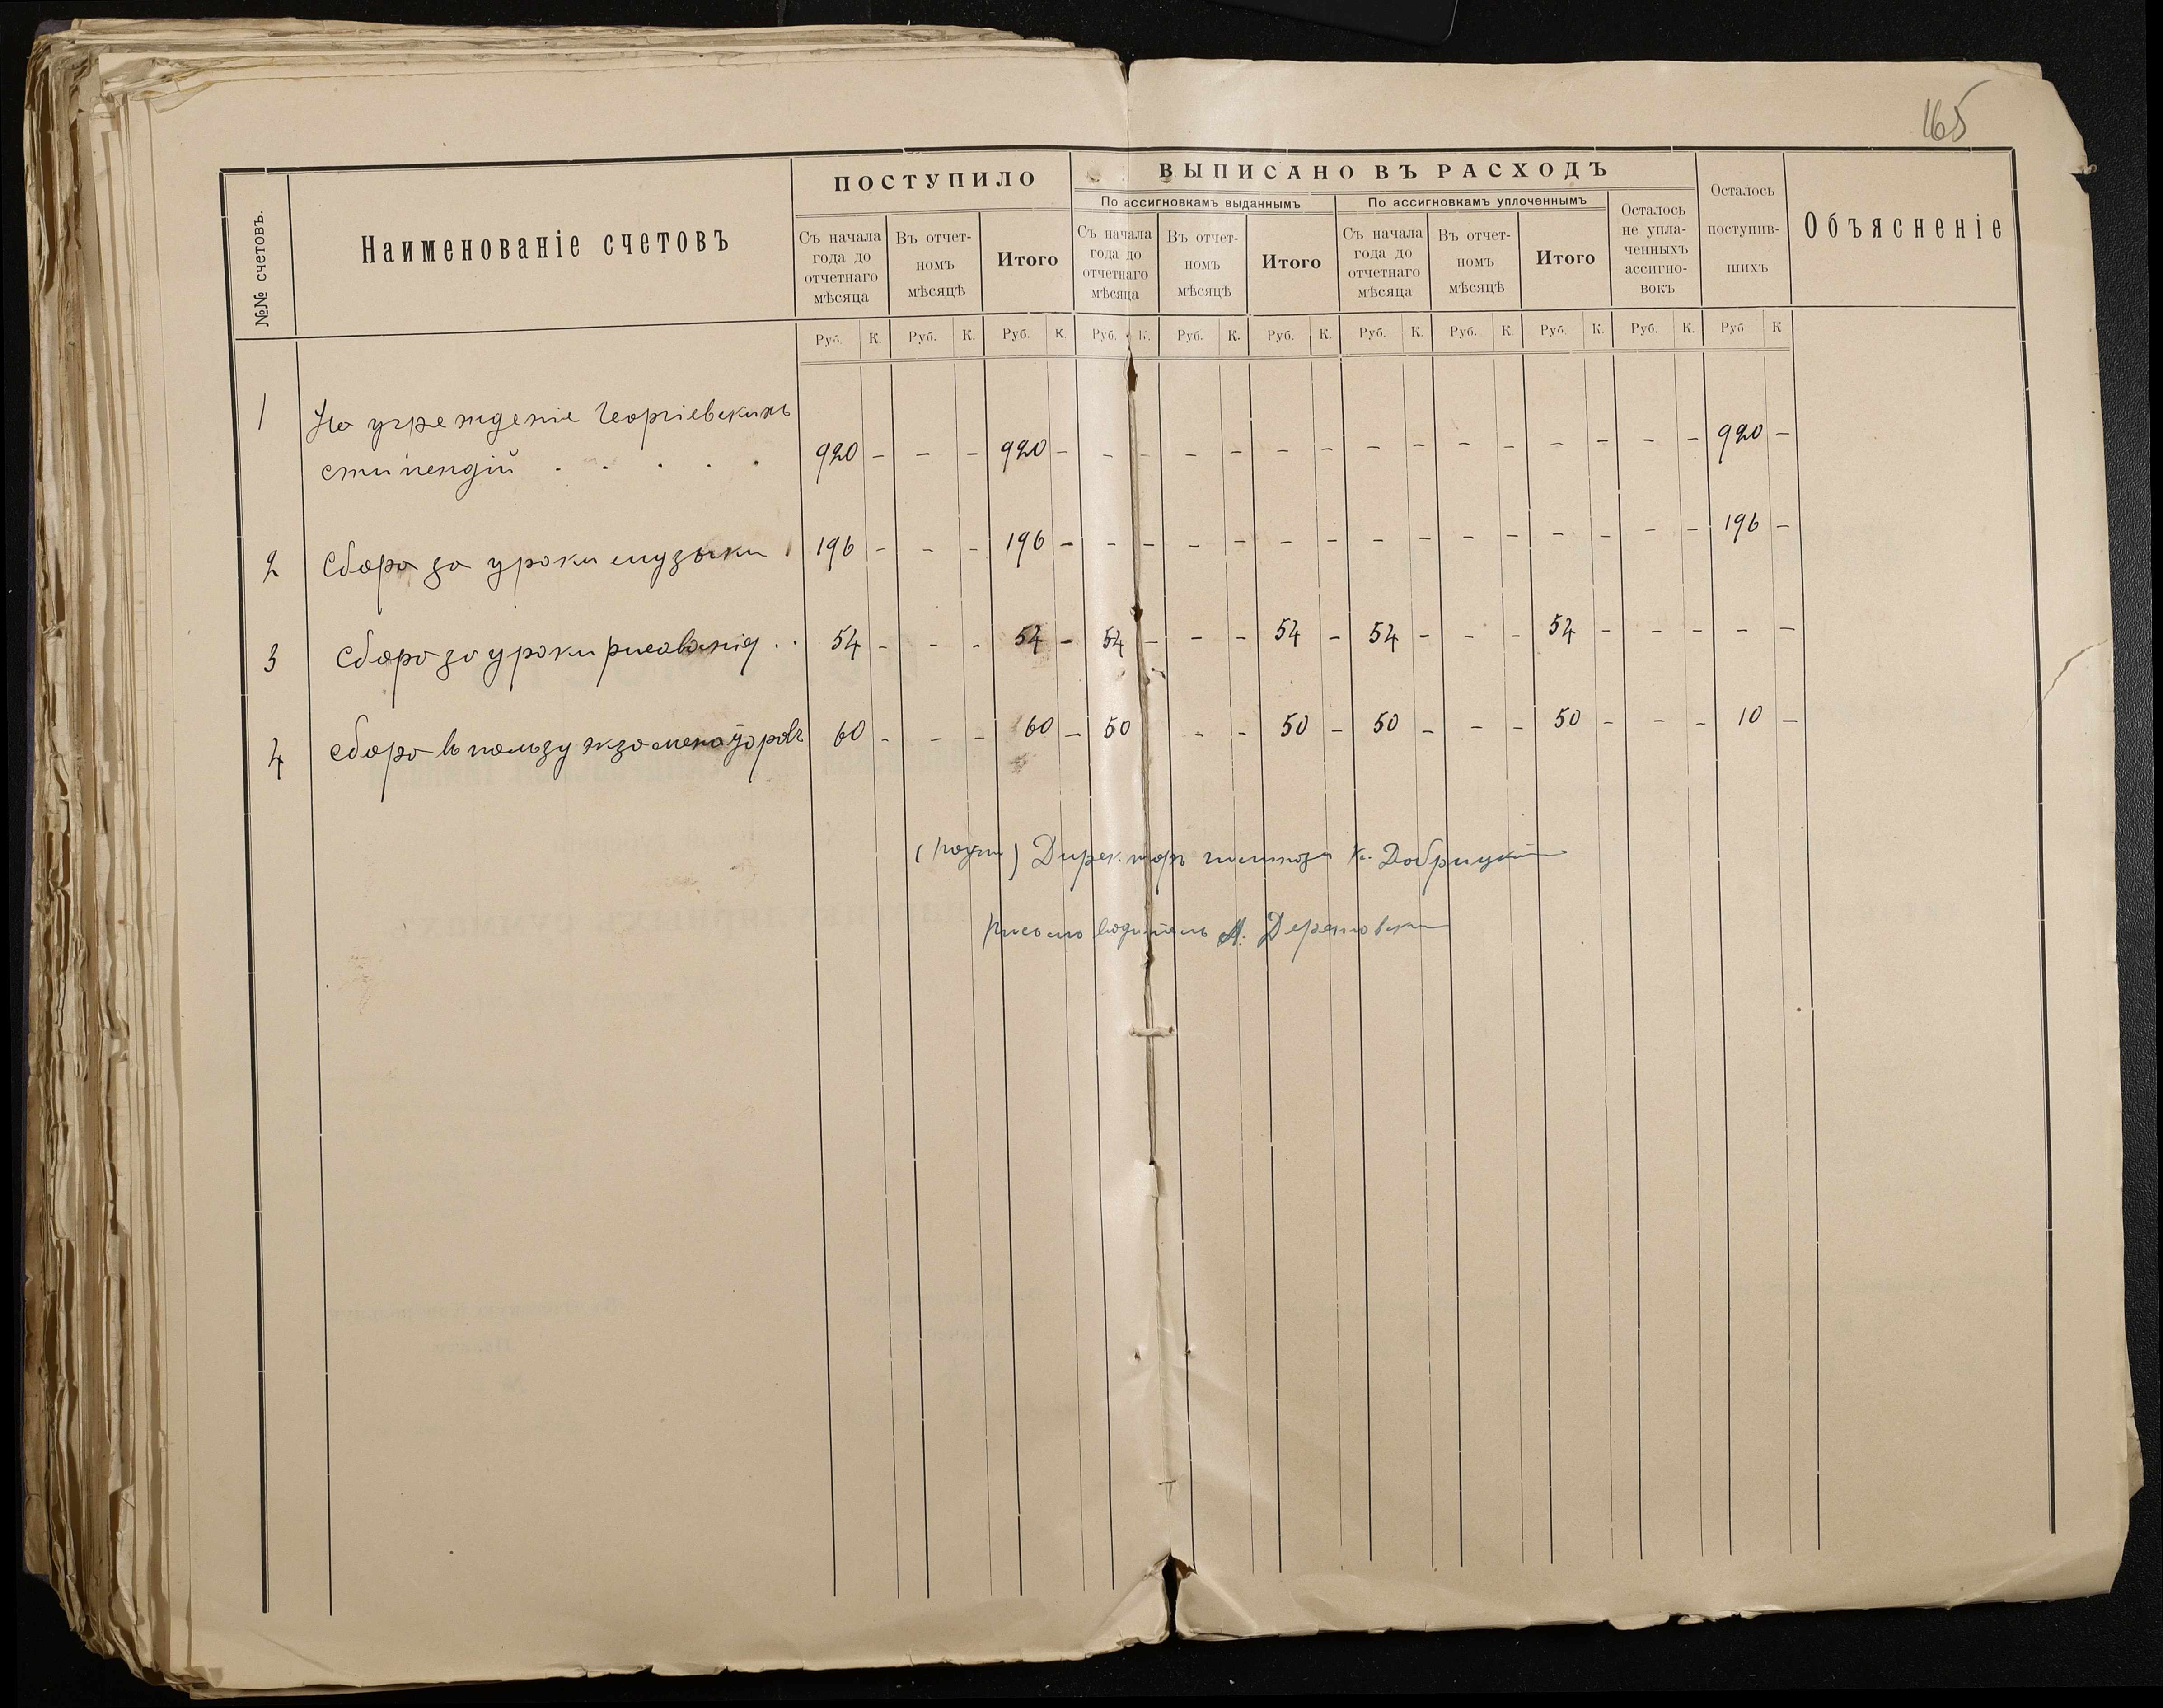 165
№№ счетовъ.
Наименованіе счетовъ
ПОСТУПИЛО
ВЫПИСАНО ВЪ РАСХОДЪ
По ассигновкамъ выданнымъ
По ассигновкамъ уплоченнымъ
Съ начала
года до
отчетнаго
мѣсяца
Въ отчет-
номъ
мѣсяцѣ
Итого
Съ начала
года до
отчетнаго
мѣсяца
Въ отчет-
номъ
мѣсяцѣ
Итого
Съ начала
года до
отчетнаго
мѣсяца
Въ отчет-
номъ
мѣсяцѣ
Итого
Осталось
не упла-
ченныхъ
ассигно-
вокъ
Осталось
поступив-
шихъ
Объясненіе
Руб. К. Руб. К. Руб. К. Руб. К. Руб. К. Руб. К. Руб. К. Руб. К. Руб. К. Руб. К. Руб К
1 На учрежденіе Георгіевскихъ
стипендій . . . . . 920 - - - 920 - - - - - - - - - - - - - - - 920 -
2 Сбора за уроки музыки 196 - - - 196 - - - - - - - - - - - - - - - 196 -
3 Сбора за уроки рисованія . . 54 - - - 54 - 54 - - - 54 - 54 - - - 54 - - - - -
4 Сбора въ пользу экзаменаторовъ 60 - - - 60 - 50 - - 50 - 50 - - - 50 - - - 10 -
Директоръ К. Добрицкій
Письмоводитель А.